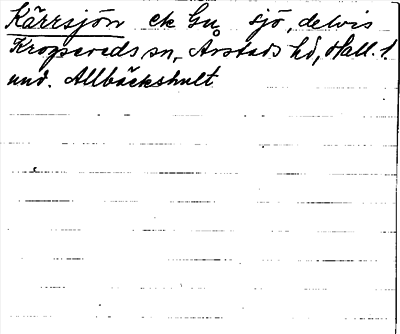 Kärrsjön ek Gu sjö, delvis
Kropsereds sn, Årstads hd, Hall. l.
und. Allbäckshult